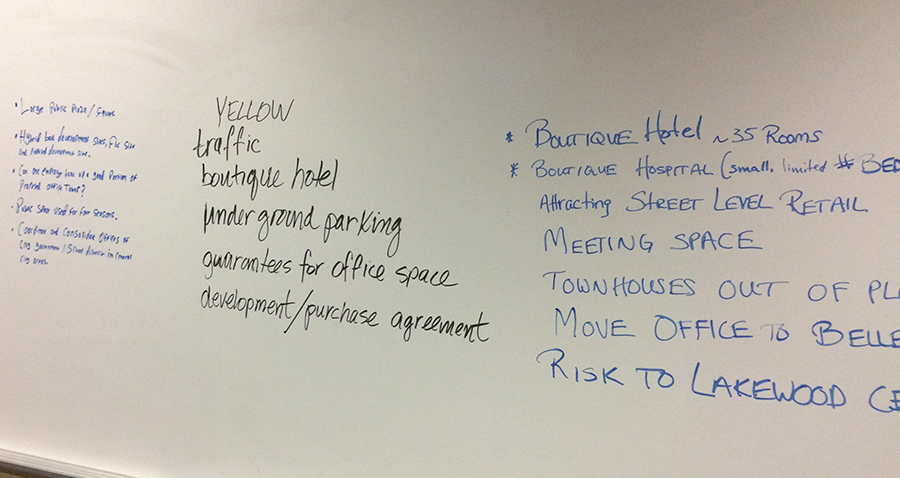 • Large Public Plaza / Square
• Hybrid
development sines, File size
• Can one
a good Portion of
Proposed Office Tower?
• Public Space used for four seasons.
• Coordinate and Consolidate Offices of
City government / School district in Central
City
YELLOW
traffic
boutique hotel
underground parking
guarantees for office space
development/purchase agreement
* BOUTIQUE Hotel ~35 ROOMS
* BOUTIQUE HOSPITAL (small, limited # BED
Attracting STREET LEVEL RETAIL
MEETING SPACE
TOWNHOUSES OUT OF PL
MOVE OFFICE TO BELLE
RISK TO LAKEWOOD CE